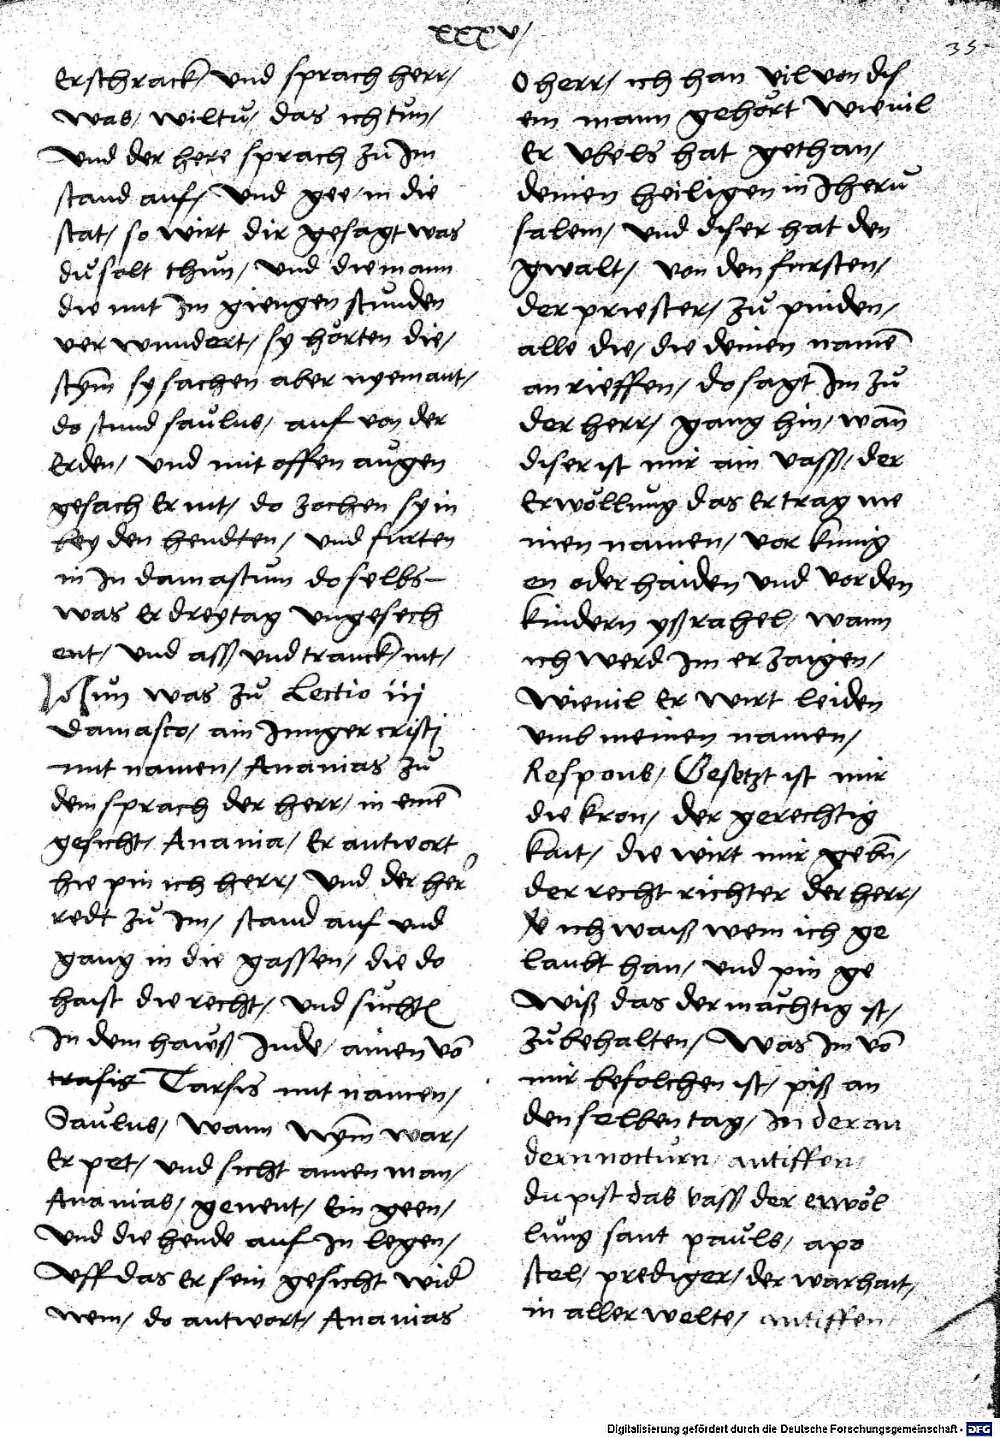 xxxv/
35
Erschrack/ vnd sprach herr/
was/ wiltu/ das ich tun/
vnd der here sprach zu Im
stand auf/ vnd gee/ in die
stat/ so wirt dir gesagt was
du solt thun/ vnd die mann
die mit Im giengen stunden
ver wundert/ sy horten die/
stym̄ sy sachen aber nyemant/
do stund saulus/ auf von der
Erden/ vnd mit offen augen
gesach Er nit/ do zochen sy in
bey den hendten/ vnd furten
in In damascum do selbs
was er drey tag vngesech
ent/ vnd ass vnd tranck/ nit/
un was zu Lectio iij
damasco/ ain Iunger cristi
mit namen/ Ananias zu
dem sprach der herr/ in einē
gesicht/ Anania/ Er antwort
hie pin ich herr/ vnd der her
redt zu Im/ stand auf vnd
gang in die gassen/ die do
haist die recht/ vnd sucht
In dem hauß Iude/ ainen vō
trasis Tarsis mit namen/
Saulus/ wann wym̄ war/
Er pet/ vnd sicht ainen man/
Ananias/ genent/ Ein geen/
vnd die hende auf In legen/
Uff das Er sein gesicht wid
nem/ do antwort/ Ananias
O herr/ ich han vil von dis
em mann gehort wieuil
Er vbels hat gethan/
deinen heiligen in Iheru
salem/ vnd diser hat den
gwalt/ von den fursten/
der priester/ zu pinden/
alle die/ die deinen namē
an rieffen/ do sagt Im zu
der herr/ gang hin/ wan̄
diser ist mir ain vass/ der
Erwollung das Er trag me
inen namen/ vor kunig
en oder haiden vnd vor den
kindern yßrahel/ wann
ich werd Im er zaigen/
wieuil Er wirt leiden
vmb meinen namen/
Respons/ Gesetzt ist mir
die kron/ der gerechtig
kait/ die wirt mir gebn̄/
der recht richter der herr/
ich waiß wem ich ge
laubt han/ vnd pin ge
wiß das der machtig ist/
zu behalten/ was Im vō
mir befolchen ist/ piß an
den selben tag/ In der an
dern nocturn/ antiffen/
du pist das vass der erwol
lung sant pauls/ apo
stel/ prediger/ der warhait/
in aller welte/ antiffen/
Digitalisierung gefördert durch die Deutsche Forschungsgemeinschaft - DFG